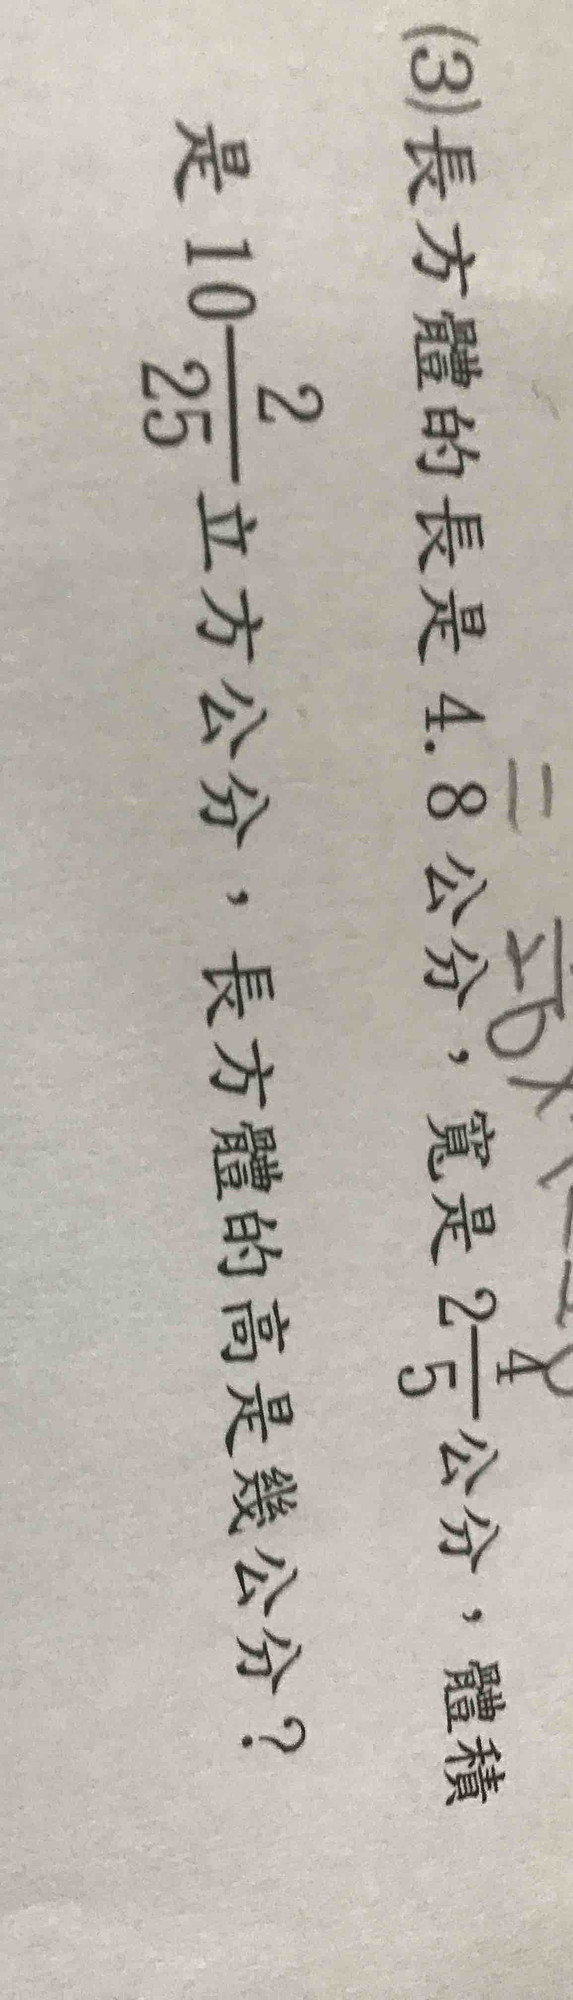 (3)長方體的長是 4.8 公分，寬是 2 4/5 公分，體積
是 10 2/25 立方公分，長方體的高是幾公分？